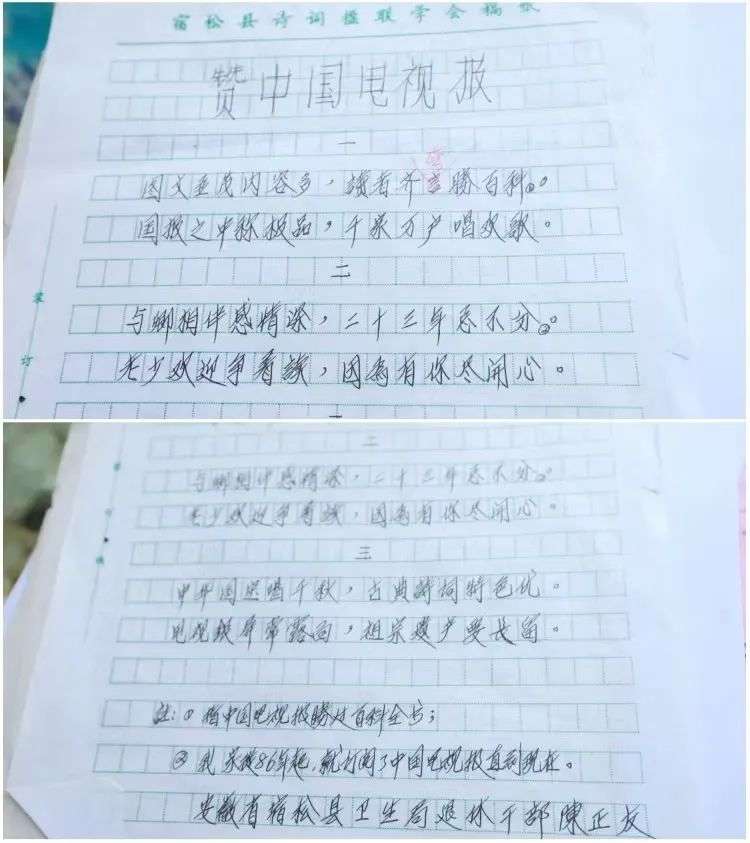 宿松县诗词楹联学会稿纸
赞中国电视报
一
图文並茂内容多，讀者齐言勝百科①。
国报之中称极品，千家万户唱欢歌。
二
与卿相伴感情深，二十三年总不分②。
老少欢迎争看讀，因為有你尽开心。
装
订
二
与卿相伴感情深，二十三年总不分②。
老少欢迎争看讀，因為有你尽开心。
三
中华国唱千秋，古典詩词特色优。
电视屏常露面，祖宗遗产要长留。
註：① 指中国电视报勝过百科全书；
② 我86年起，就订阅了中国电视报直到现在。
安徽省宿松县卫生局退休干部陳正友